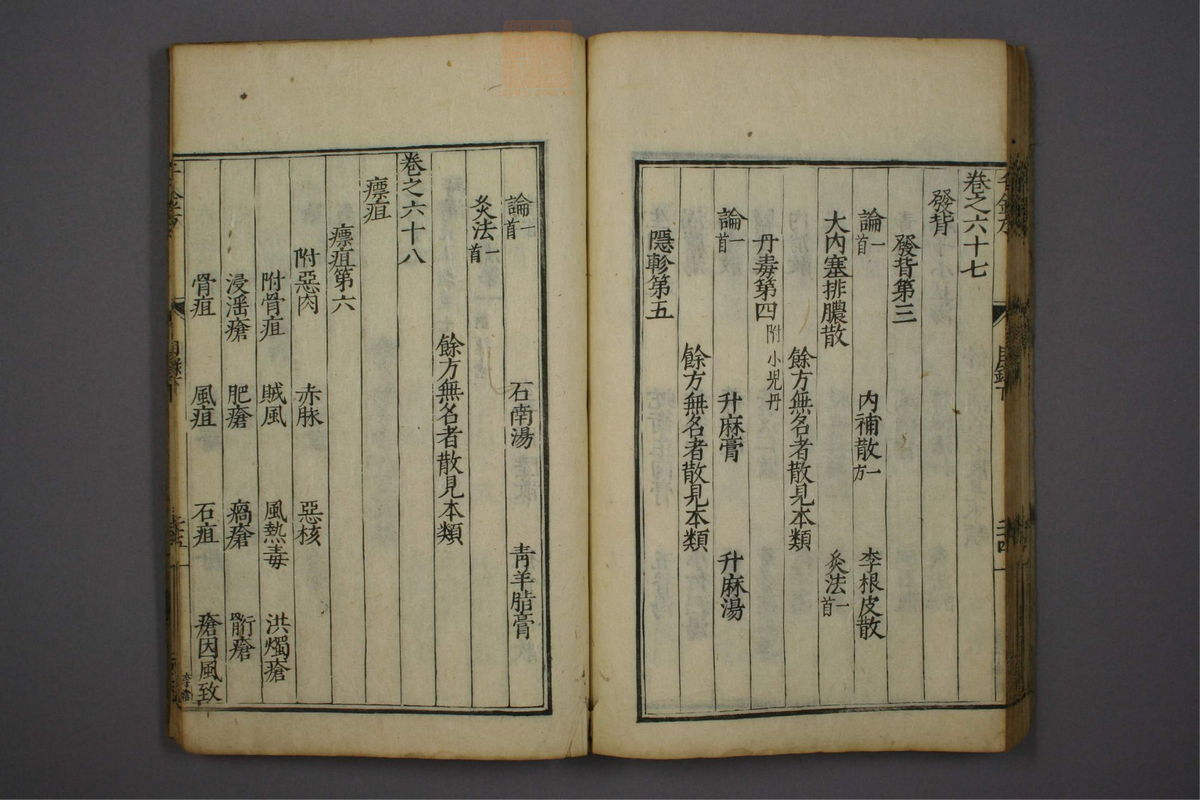 卷之六十七
發背
發背第三
論一首 內補散一方 李根皮散
大內塞排膿散 灸法一首
餘方無名者散見本類
丹毒第四附小児丹
論一首 升麻膏 升麻湯
餘方無名者散見本類
隱軫第五
論一首 石南湯 青羊脂膏
灸法一首
餘方無名者散見本類
卷之六十八
瘭疽
瘭疽第六
附惡肉 赤脉 惡核
附骨疽 賊風 風熱毒 洪燭瘡
浸淫瘡 肥瘡 瘑瘡 䯒瘡
骨疽 風疽 石疽 瘡因風致